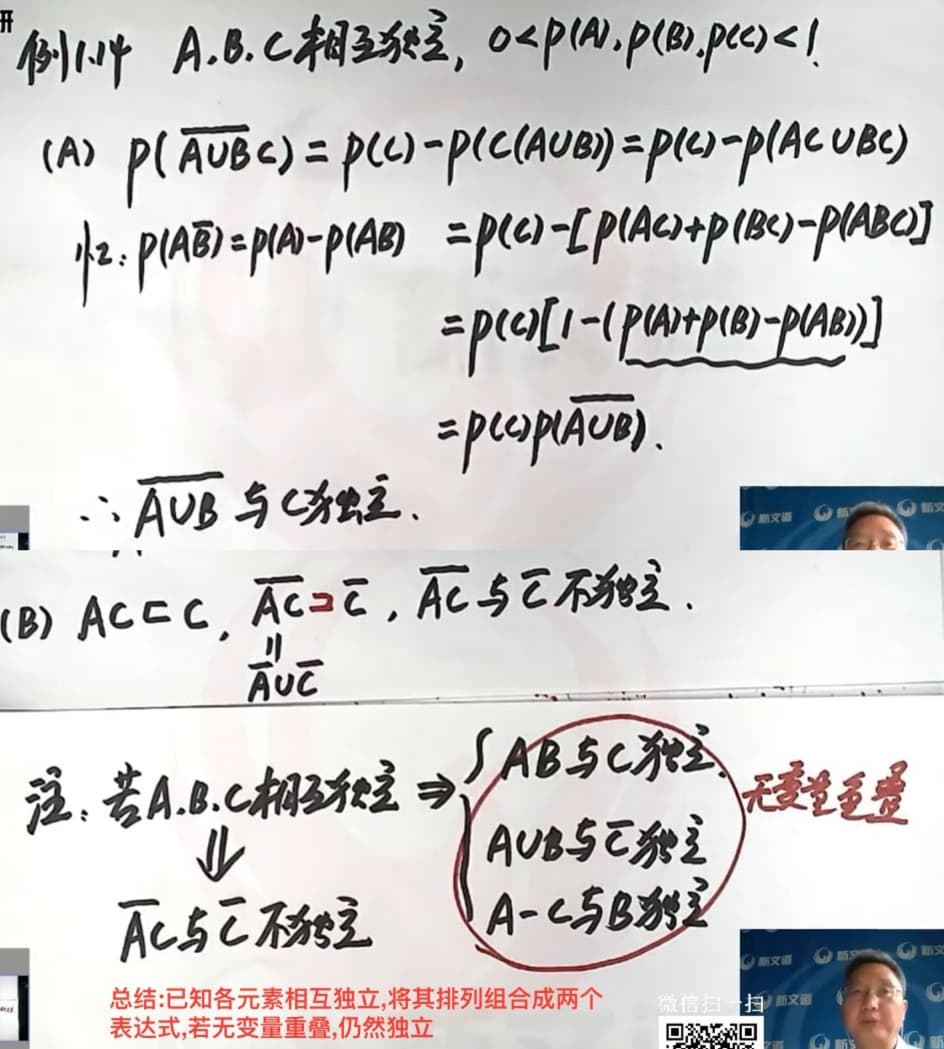 开
例1.14 A.B.C相互独立, 0<P(A),P(B),P(C)<1.
(A) P(\overline{A∪B}C)=P(C)-P(C(A∪B))=P(C)-P(AC∪BC)
P(A\overline{B})=P(A)-P(AB) =P(C)-[P(AC)+P(BC)-P(ABC)]
=P(C)[1-(P(A)+P(B)-P(AB))]
=P(C)P(\overline{A∪B}).
∴ \overline{A∪B} 与C独立.
新文道
(B) AC⊂C, \overline{AC}⊃\overline{C}, \overline{AC}与\overline{C}不独立.
||
\overline{A}∪\overline{C}
注: 若A.B.C相互独立 ⇒ { AB与C独立.
A∪B与\overline{C}独立
A-C与B独立
无变量重叠
⇓
\overline{A}C与\overline{C}不独立
新文道
总结:已知各元素相互独立,将其排列组合成两个
表达式,若无变量重叠,仍然独立
微信扫一扫